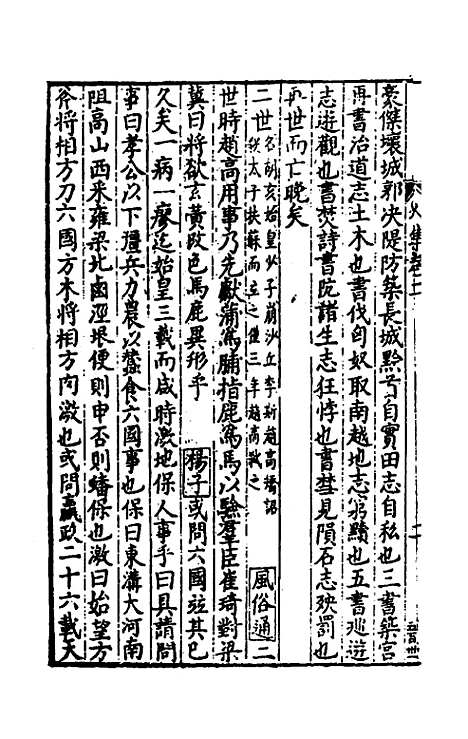 豪傑壞城郭决隄防築長城黔首自實田志自私也三書築宮
再書治道志土木也書伐匈奴取南越地志窮黷也五書廵逰
志逰觀也書焚詩書阬諸生志狂悖也書彗見隕石志殃罰也
再世而亡晚矣
二世
名胡亥始皇少子崩沙丘李斯趙高矯詔
殺太子扶蘇而立之僅三年趙高弑之
風俗通
二
世時趙高用事乃先獻蒲爲脯指鹿爲馬以驗羣臣崔琦對梁
冀曰將欲玄黃攺色馬鹿異形乎
楊子
或問六國竝其已
久矣一病一瘳迄始皇三載而咸時激地保人事乎曰具請問
事曰孝公以下彊兵力農以蠶食六國事也保曰東溝大河南
阻高山西采雍梁北鹵涇垠便則申否則蟠保也激曰始望方
斧將相方刀六國方木將相方肉激也或問嬴政二十六載天